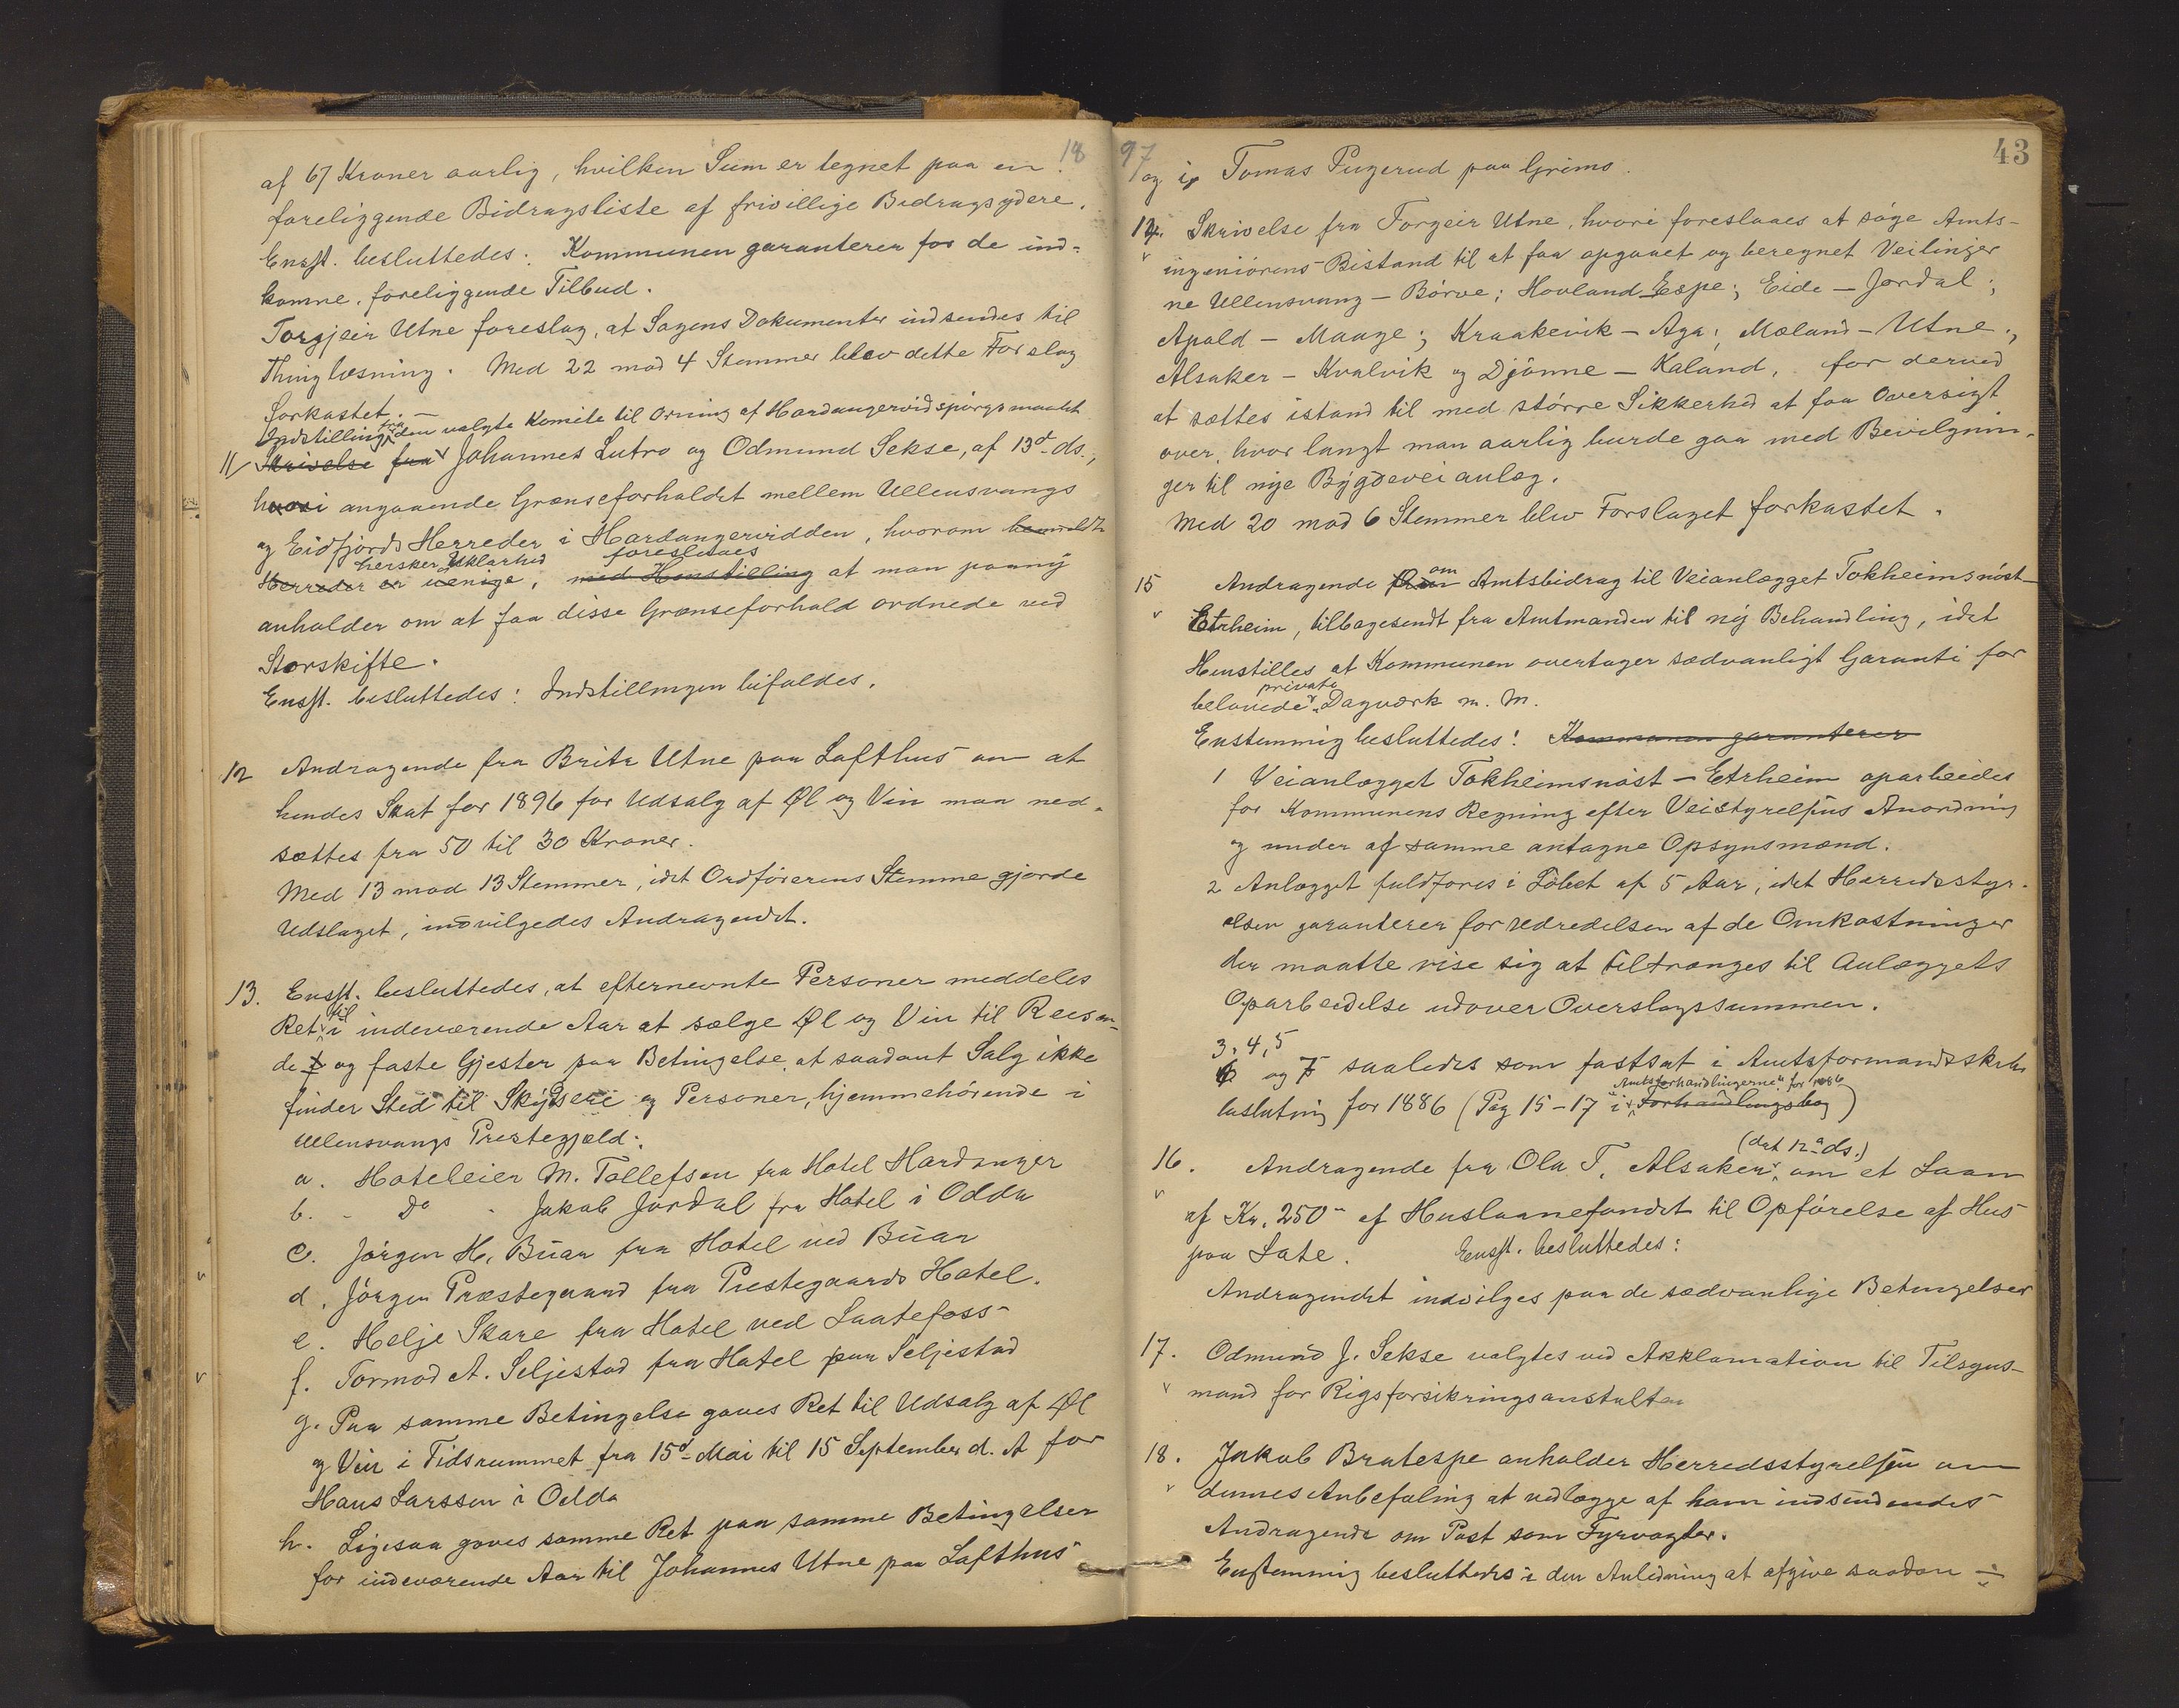 18
af 67 Kroner aarlig, hvilken Sum er tegnet paa en
foreliggende Bidragsliste af frivillige Bidragsydere.
Enst. besluttedes: Kommunen garanterer for de ind-
komne, foreliggende Tilbud.
Torgjeir Utne foreslog, at Sagens Dokumenter indsendes til
Thinglæsning. Med 22 mod 4 Stemmer blev dette Forslag
forkastet. —
Indstilling fra den valgte Komite til Orning af Hardangervidspörgsmaalet
11 Skrivelse fra Johannes Lutro og Odmund Sekse, af 13d ds.,
hvori angaaende Grænseforholdet mellem Ullensvangs
og Eidfjords Herreder i Hardangervidden, hvorom
hersker Uklarhed foreslaaes
Herreder er uenige, med Henstilling at man paany
anholder om at faa disse Grænseforhold ordnede ved
Storskifte.
Enst. besluttedes: Indstillingen bifaldes.
12 Andragende fra Brita Utne paa Lofthus om at
hendes Skat for 1896 for Udsalg af Øl og Vin maa ned-
sættes fra 50 til 30 Kroner.
Med 13 mod 13 Stemmer, idet Ordförerens Stemme gjorde
Udslaget, indvilgedes Andragendet.
13. Enst. besluttedes, at efternevnte Personer meddeles
Ret til i indeværende Aar at sælge Øl og Vin til Reisen-
de og faste Gjester paa Betingelse at saadant Salg ikke
finder Sted til Skydseie og Personer, hjemmehörende i
Ullensvangs Prestegjæld:
a. Hoteleier M. Tollefsen fra Hotel Hardanger
b. - Do - Jakob Jordal fra Hotel i Odda
c. Jörgen H. Buar fra Hotel ved Buar
d. Jörgen Præstegaard fra Prestegaards Hotel.
e. Helje Skare fra Hotel ved Laatefoss
f. Tormod A. Seljestad fra Hotel paa Seljestad
g. Paa samme Betingelse gaves Ret til Udsalg af Øl
og Vin i Tidsrummet fra 15d Mai til 15 September d. A for
Hans Larssen i Odda
h. Ligesaa gaves samme Ret paa samme Betingelser
for indeværende Aar til Johannes Utne paa Lofthus
97
43
og i Tomas Pugerud paa Grimo.
14. Skrivelse fra Torgeir Utne, hvori foreslaaes at söge Amts-
ingeniörens Bistand til at faa opgaaet og beregnet Veilinjer
ne Ullensvang — Börve; Hovland — Espe; Eide — Jordal;
Apold — Maage; Kraakevik — Aga; Mæland — Utne;
Alsaker — Kvalvik og Djönne — Kaland, for derved
at sættes istand til med större Sikkerhed at faa Oversigt
over, hvor langt man aarlig burde gaa med Bevilgnin-
ger til nye Bygdeveianlæg.
Med 20 mod 6 Stemmer blev Forslaget forkastet.
15 Andragende om Amtsbidrag til Veianlægget Tokheimsnöst —
Etrheim, tilbagesendt fra Amtmanden til ny Behandling, idet
Henstilles at Kommunen overtager sædvanligt Garanti for
private
belovede Dagværk m. m.
Enstemmig besluttedes: Kommunen garanterer
1 Veianlægget Tokheimsnöst — Etrheim oparbeides
for Kommunens Regning efter Veistyrelsens Anordning
og under af samme antagne Opsynsmænd.
2 Anlægget fuldföres i Löbet af 5 Aar, idet Herredsstyr-
elsen garanterer for Udredelsen af de Omkostninger
der maatte vise sig at tiltrænges til Anlæggets
Oparbeidelse udover Overslagssummen.
3, 4, 5
6 og 7 saaledes som fastsat i Amtsformandsskabs
Amtsforhandlingerne for 1886
beslutning for 1886 (Pag 15-17 i Forhandlingsbog)
(det 12d ds.)
16. Andragende fra Ola T. Alsaker om et Laan
af Kr. 250- af Huslaanefondet til Opförelse af Hus
paa Late. Enst. besluttedes:
Andragendet indvilges paa de sædvanlige Betingelser
17. Odmund J. Sekse valgtes ved Akklamation til Tilsyns-
mand for Rigsforsikringsanstalten
18. Jakob Bratespe anholder Herredsstyrelsen om
dennes Anbefaling at vedlægge af ham indsendendes
Andragende om Post som Fyrvogter.
Enstemmig besluttedes i den Anledning at afgive saadan